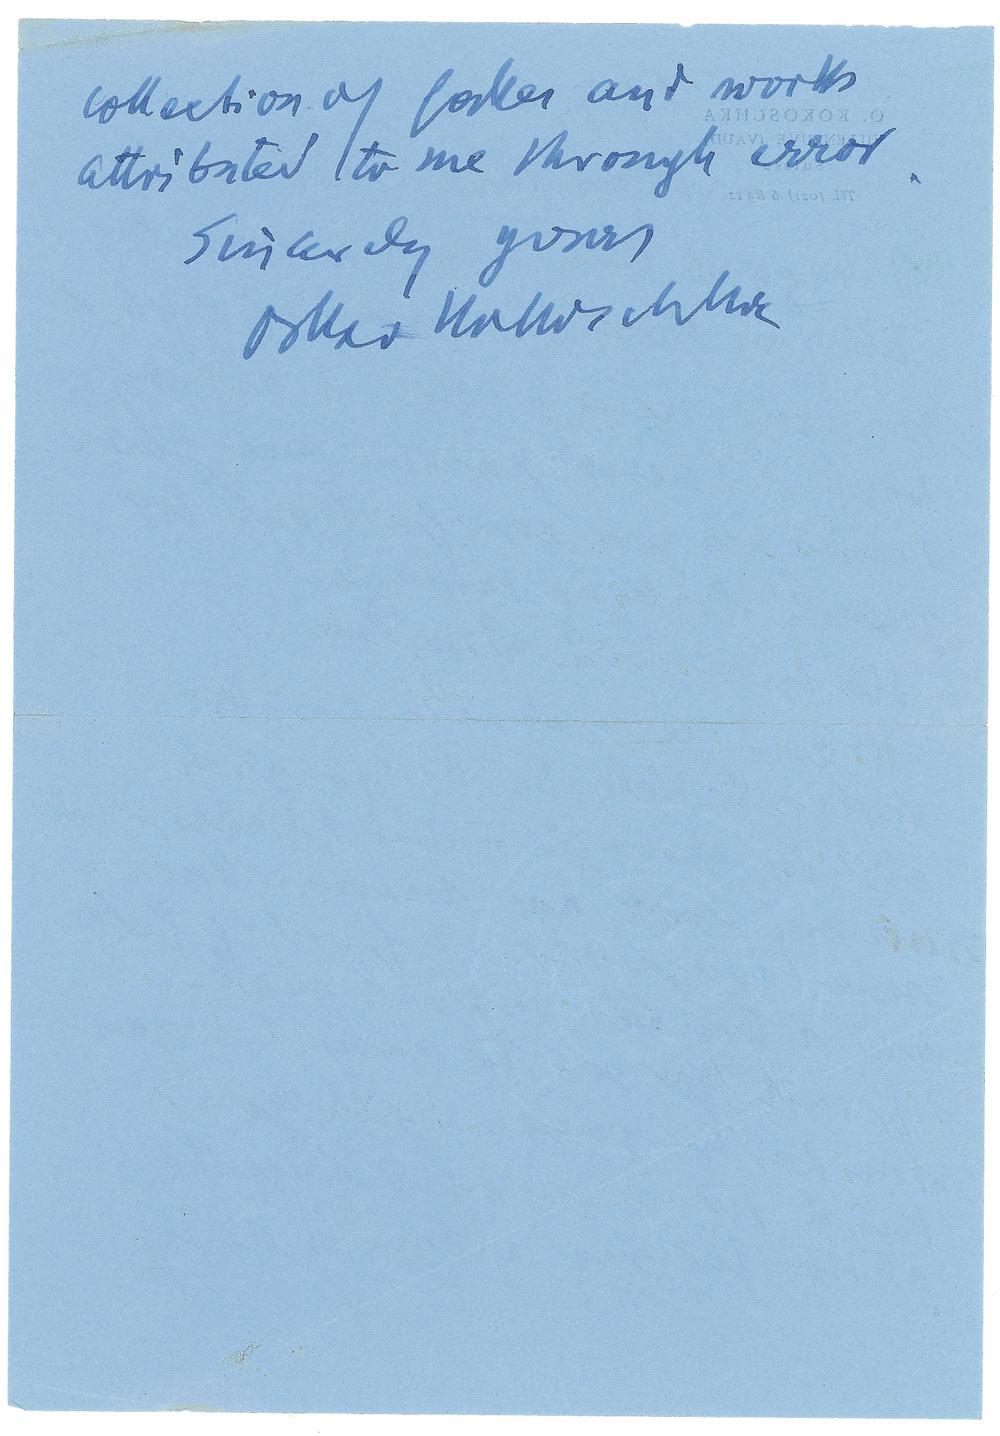 collection of fakes and works
attributed to me through error.
Sincerely yours
Oskar Kokoschka
O. KOKOSCHKA
VILLENEUVE (VAUD)